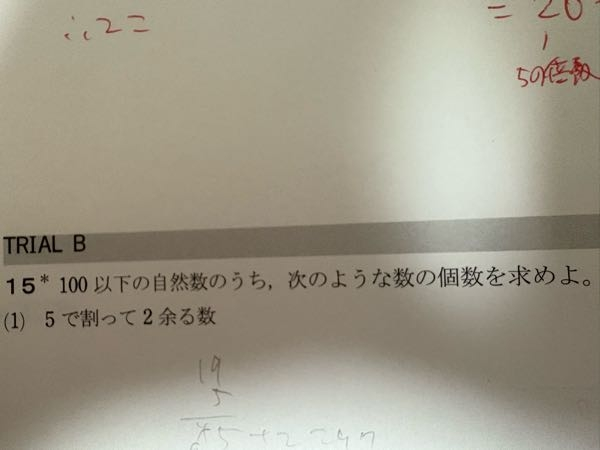 ∴ 2こ
= 20
5の倍数
TRIAL B
15* 100 以下の自然数のうち，次のような数の個数を求めよ。
(1) 5 で割って 2 余る数
19
5
95+2=97